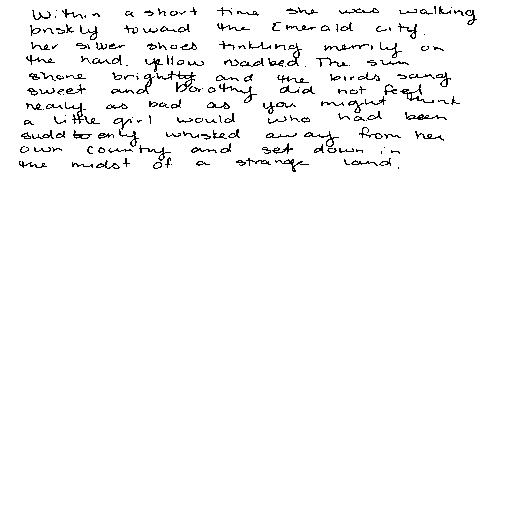 Within a short time she was walking
briskly toward the Emerald City.
her silver shoes tinkling merrily on
the hard. yellow roadbed. The sun
shone brightly and the birds sang
sweet and Dorothy did not feel
nearly as bad as you might think
a little girl would who had been
suddenly whisked away from her
own country and set down in
the midst of a strange land.